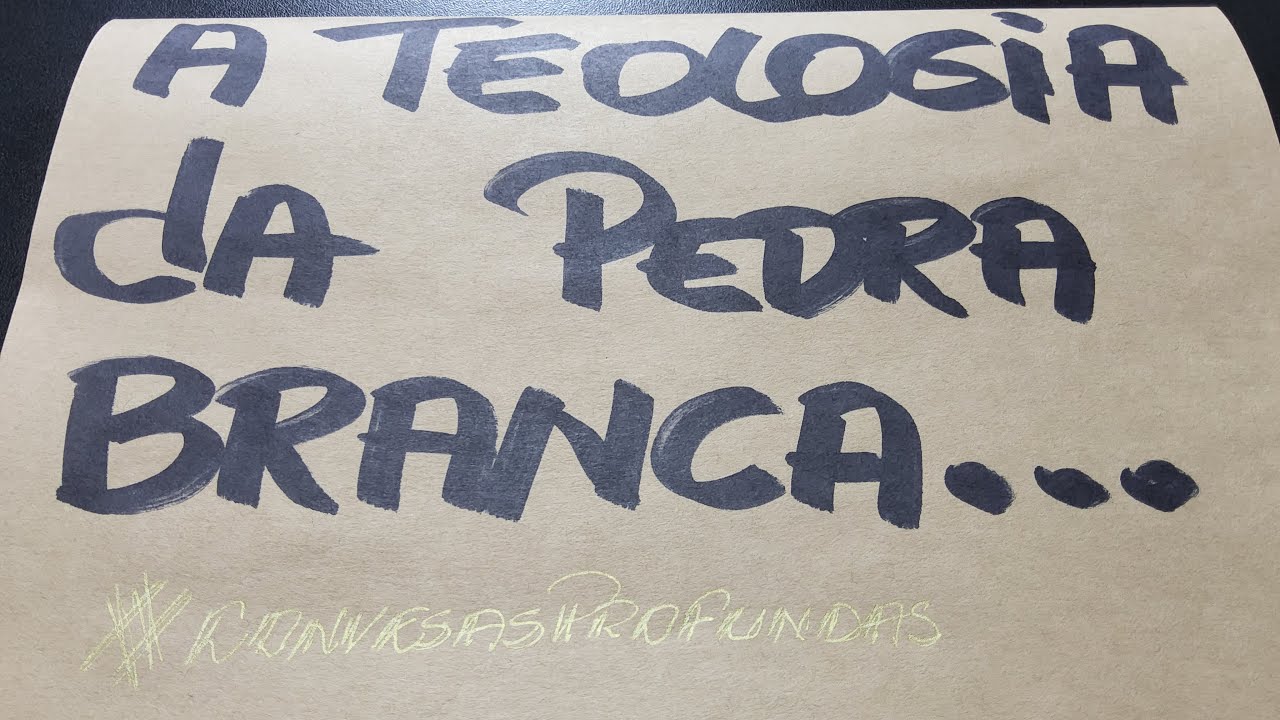 A TEOLOGIA
da PEDRA
BRANCA...
#CONVESASPROFUNDAS